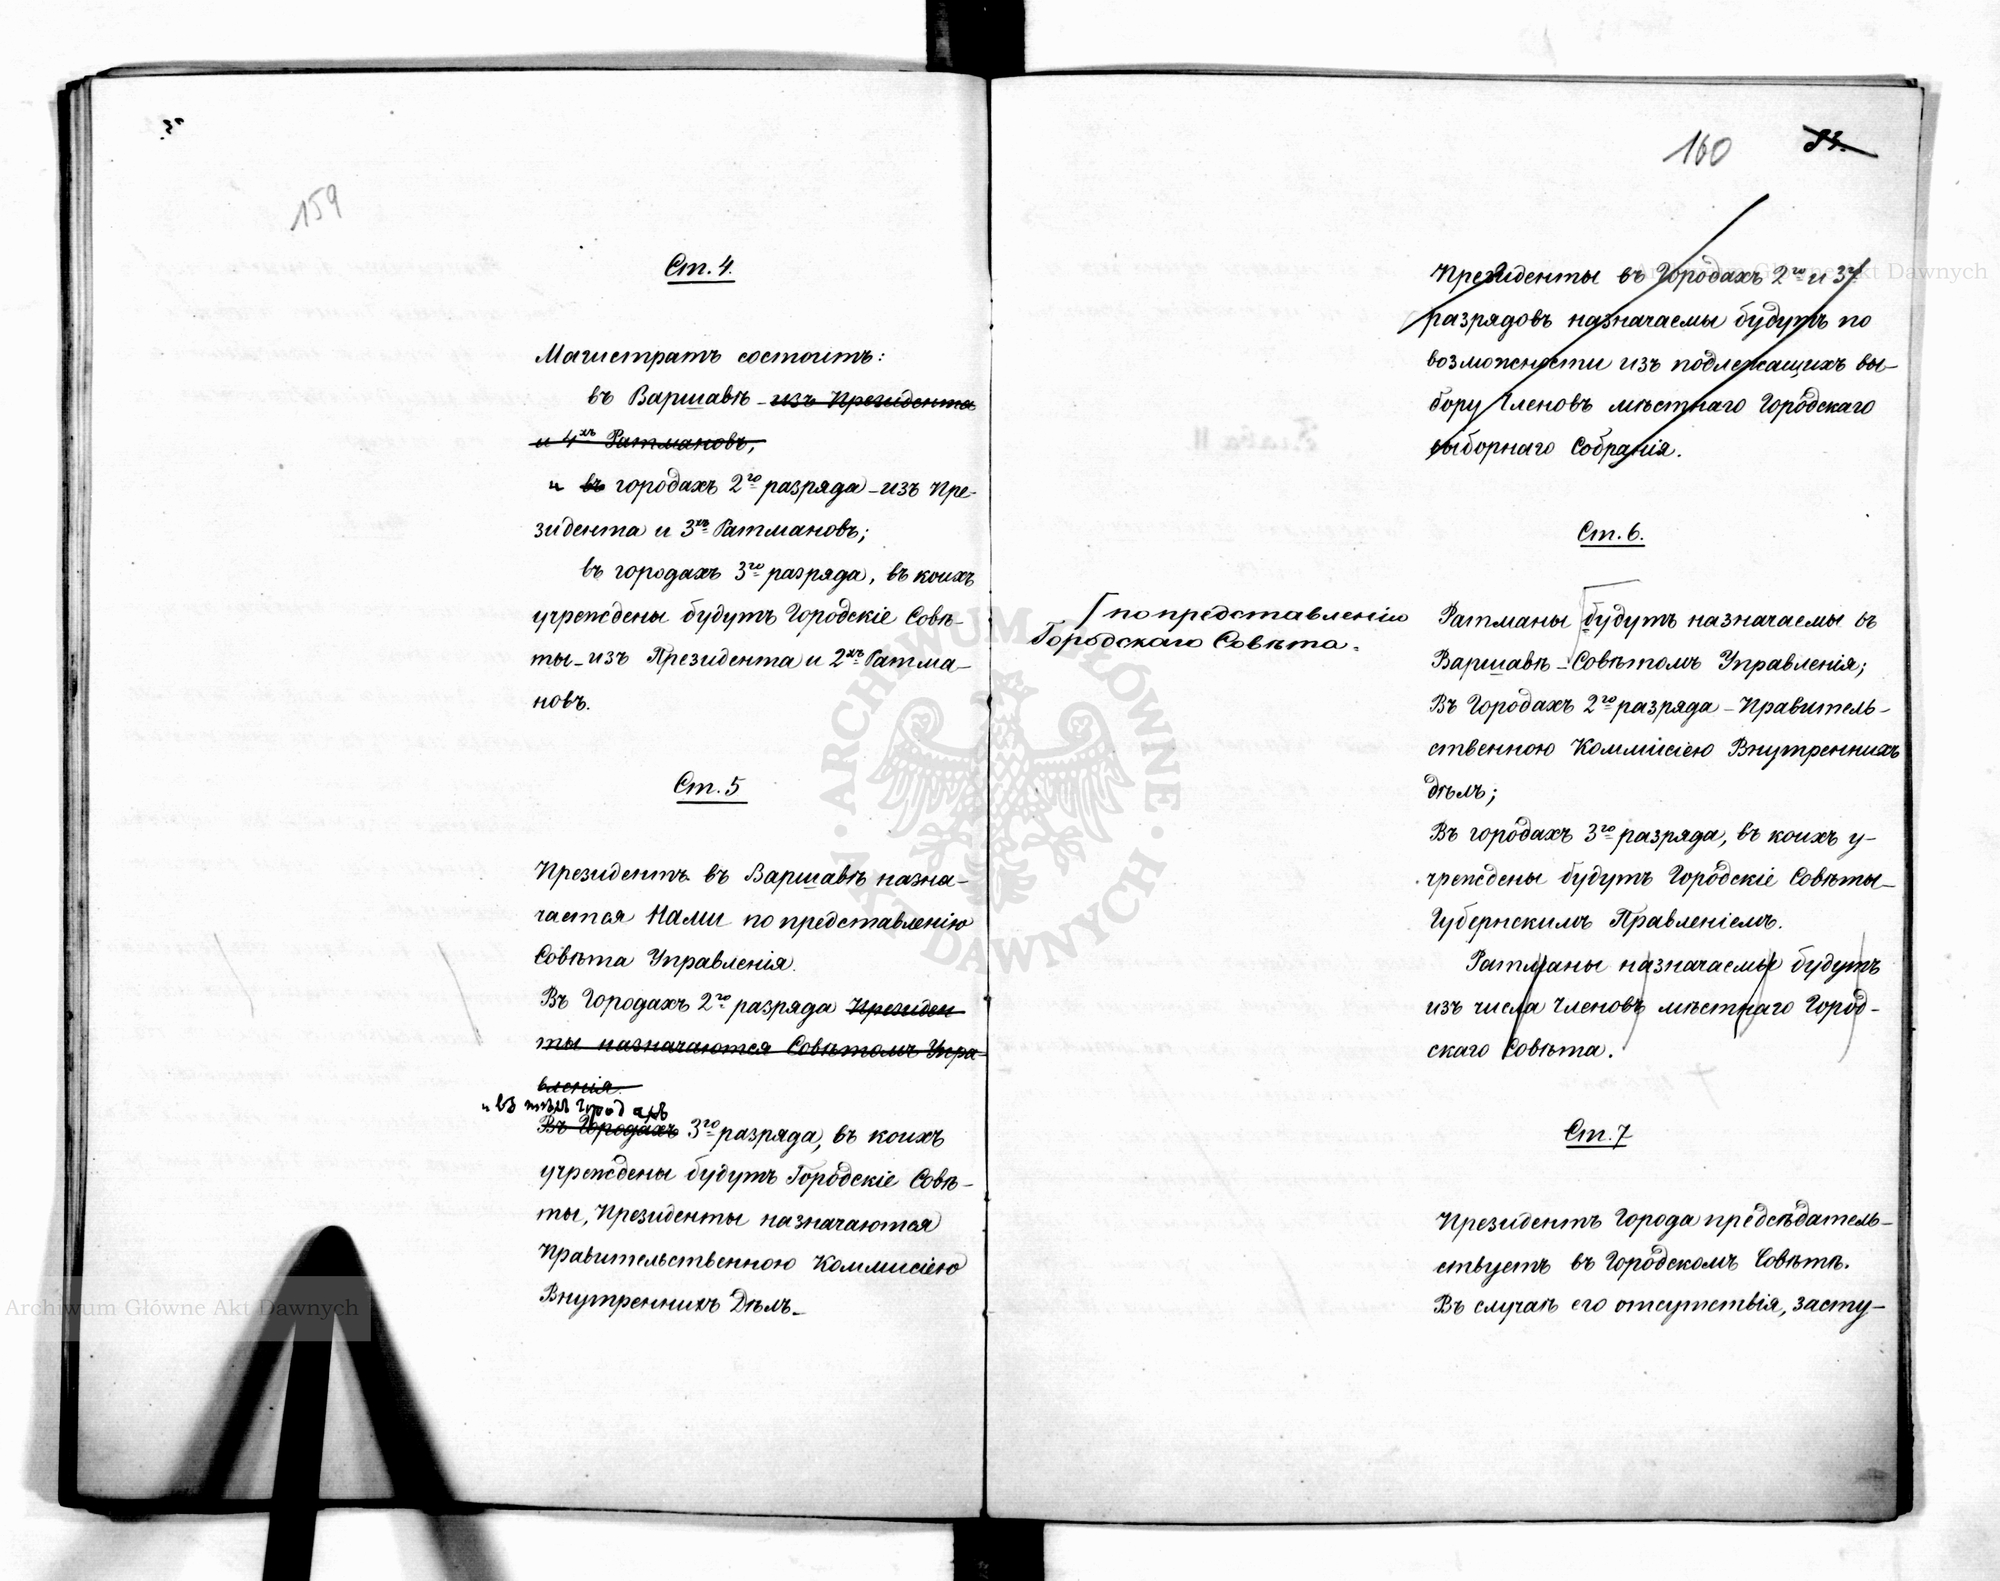 159
Ст. 4.
Магистратъ состоитъ:
въ Варшавѣ – изъ Президента
и 4хъ Ратмановъ,
и въ городахъ 2го разряда – изъ Пре-
зидента и 3хъ Ратмановъ;
въ городахъ 3го разряда, въ коихъ
учреждены будутъ Городскіе Совѣ-
ты – изъ Президента и 2хъ Ратма-
новъ.
Ст. 5
Президентъ въ Варшавѣ назна-
чается Нами по представленію
Совѣта Управленія.
Въ Городахъ 2го разряда Президен
ты назначаются Совѣтомъ Упра-
вленія.
и въ тѣхъ городахъ
Въ Городахъ 3го разряда, въ коихъ
учреждены будутъ Городскіе Совѣ-
ты, Президенты назначаются
Правительственною Коммисіею
Внутреннихъ Дѣлъ –
160
Президенты въ Городахъ 2го и 3го
разрядовъ назначаемы будутъ по
возможности изъ подлежащихъ вы-
бору Членовъ мѣстнаго Городскаго
выборнаго Собранія.
Ст. 6.
по представленію
Городскаго Совѣта.
Ратманы будутъ назначаемы въ
Варшавѣ – Совѣтомъ Управленія;
Въ Городахъ 2го разряда – Правитель-
ственною Коммисіею Внутреннихъ
дѣлъ;
Въ городахъ 3го разряда, въ коихъ у-
чреждены будутъ Городскіе Совѣты –
Губернскимъ Правленіемъ.
Ратманы назначаемы будутъ
изъ числа Членовъ мѣстнаго Город-
скаго Совѣта.
Ст. 7
Президентъ Города предсѣдатель-
ствуетъ въ Городскомъ Совѣтѣ.
Въ случаѣ его отсутствія, засту-
ARCHIWUM GŁÓWNE AKT DAWNYCH
Archiwum Główne Akt Dawnych
Archiwum Główne Akt Dawnych